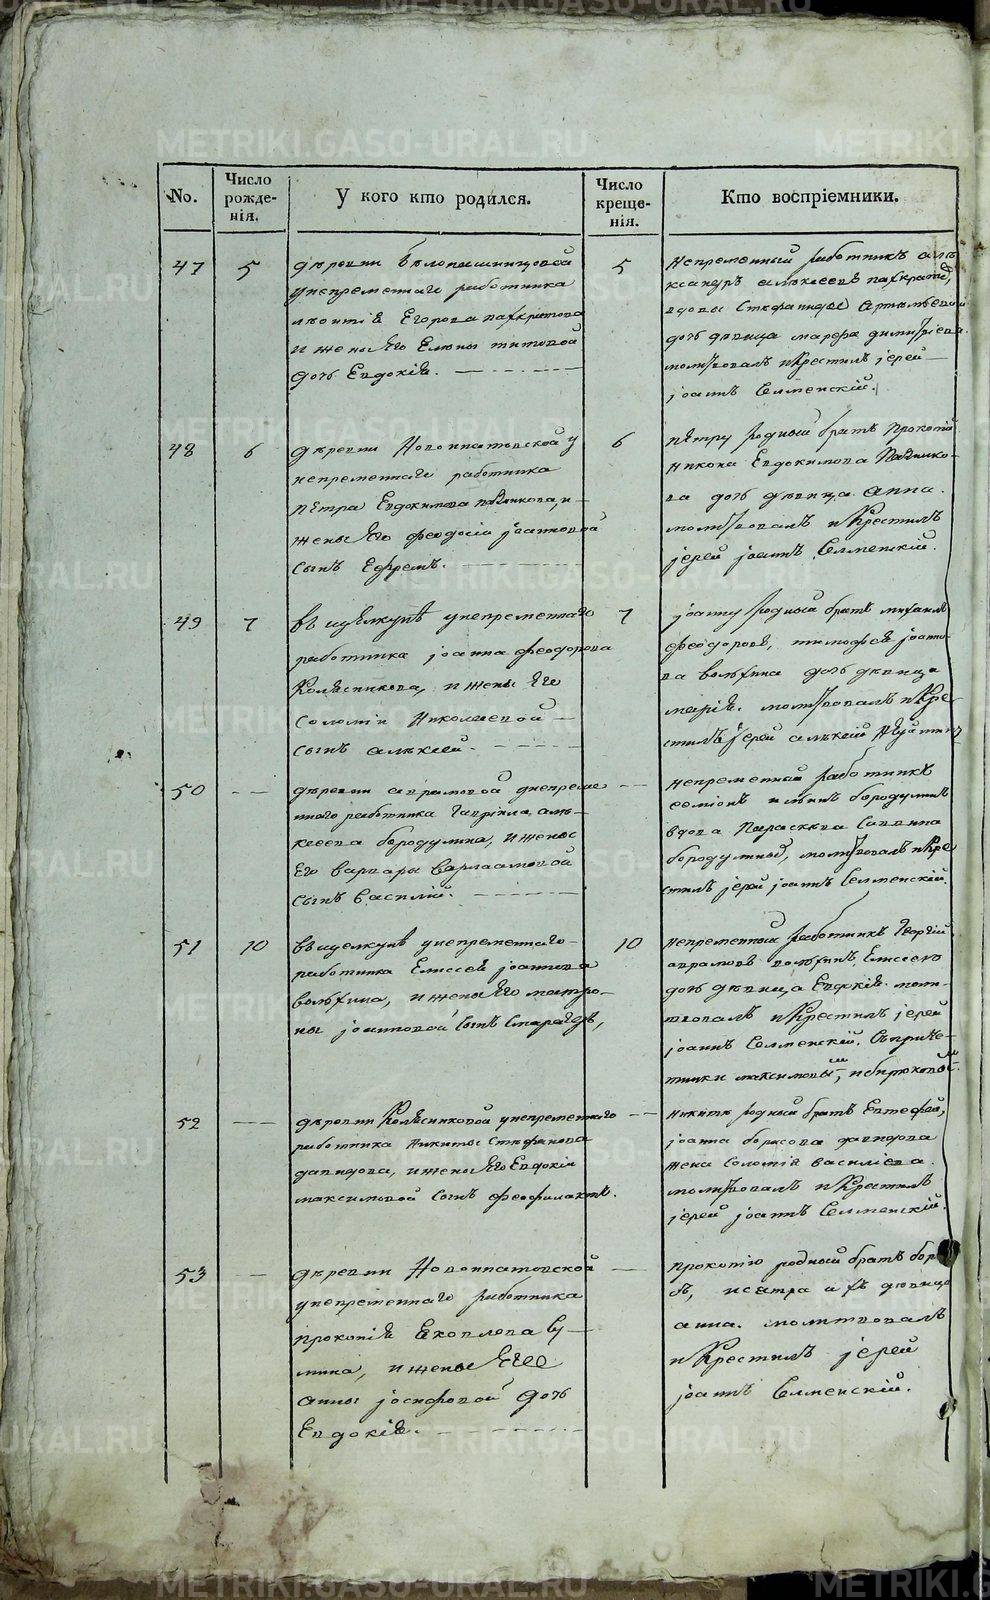 METRIKI.GASO-URAL.RU
No.
Число рожде-нія.
У кого кто родился.
Число креще-нія.
Кто воспріемники.
47
5
деревни Белопашинцовой
унепременнаго работника
леонтія Егорова панкратова
и жены его Елены титовой
дочь Евдокія.
5
непременный работникъ але
ксандръ алексеевъ панкратовъ,
вдовы Стефаниды Артемьевой
дочь девица марфа димитріева
молитвовалъ и Крестилъ іерей
іоаннъ Селменскій.
48
6
деревни Новоипатовской у
непременнаго работника
петра Евдокимова и
жены его феодосіи іоанновой
сынъ Ефремъ.
6
петру родный братъ прокопій
никона Евдокимова
ва дочь девица анна.
молитвовалъ и Крестилъ
іерей іоаннъ Селменскій.
49
7
въ щелкуне унепременнаго
работника іоанна феодорова
Колясникова, и жены его
соломіи Николаевой
сынъ алексей.
7
іоанну родный братъ михаилъ
феодоровъ, тимофея іоанно
ва дочь девица
марія. молитвовалъ и Кре-
стилъ іерей алексей
50
деревни аврамовой унепреме
ннаго работника Гавріила але-
ксеева бородулина, и жены
Его варвары варлаамовой
сынъ василій.
непременный работникъ
семіонъ бородулинъ
вдова Параскева Саввина
бородулиныхъ, молитвовалъ и Кре
стилъ іерей іоаннъ Селменскій.
51
10
въ щелкуне унепременнаго
работника Елисея іоаннова
и жены его матро-
ны іоанновой сынъ Смарагдъ,
10
непременный работникъ Георгій
аврамовъ Елисея
дочь девица Евдокія. моли-
твовалъ и Крестилъ іерей
іоаннъ Селменскій. Съ приче-
тники максимовымъ, и бирюковымъ.
52
деревни Колясниковой унепременнаго
работника никиты Стефанова
давыдова, и жены его Евдокіи
максимовой сынъ феофилактъ.
никите родный братъ
іоанна борисова давыдова
жена соломія василіева.
молитвовалъ и Крестилъ
іерей іоаннъ Селменскій.
53
деревни Новоипатовской
унепременнаго работника
прокопія
и жены его
анны іосифовой дочь
Евдокія.
прокопію родный братъ
девица
анна. молитвовалъ
и Крестилъ іерей
іоаннъ Селменскій.